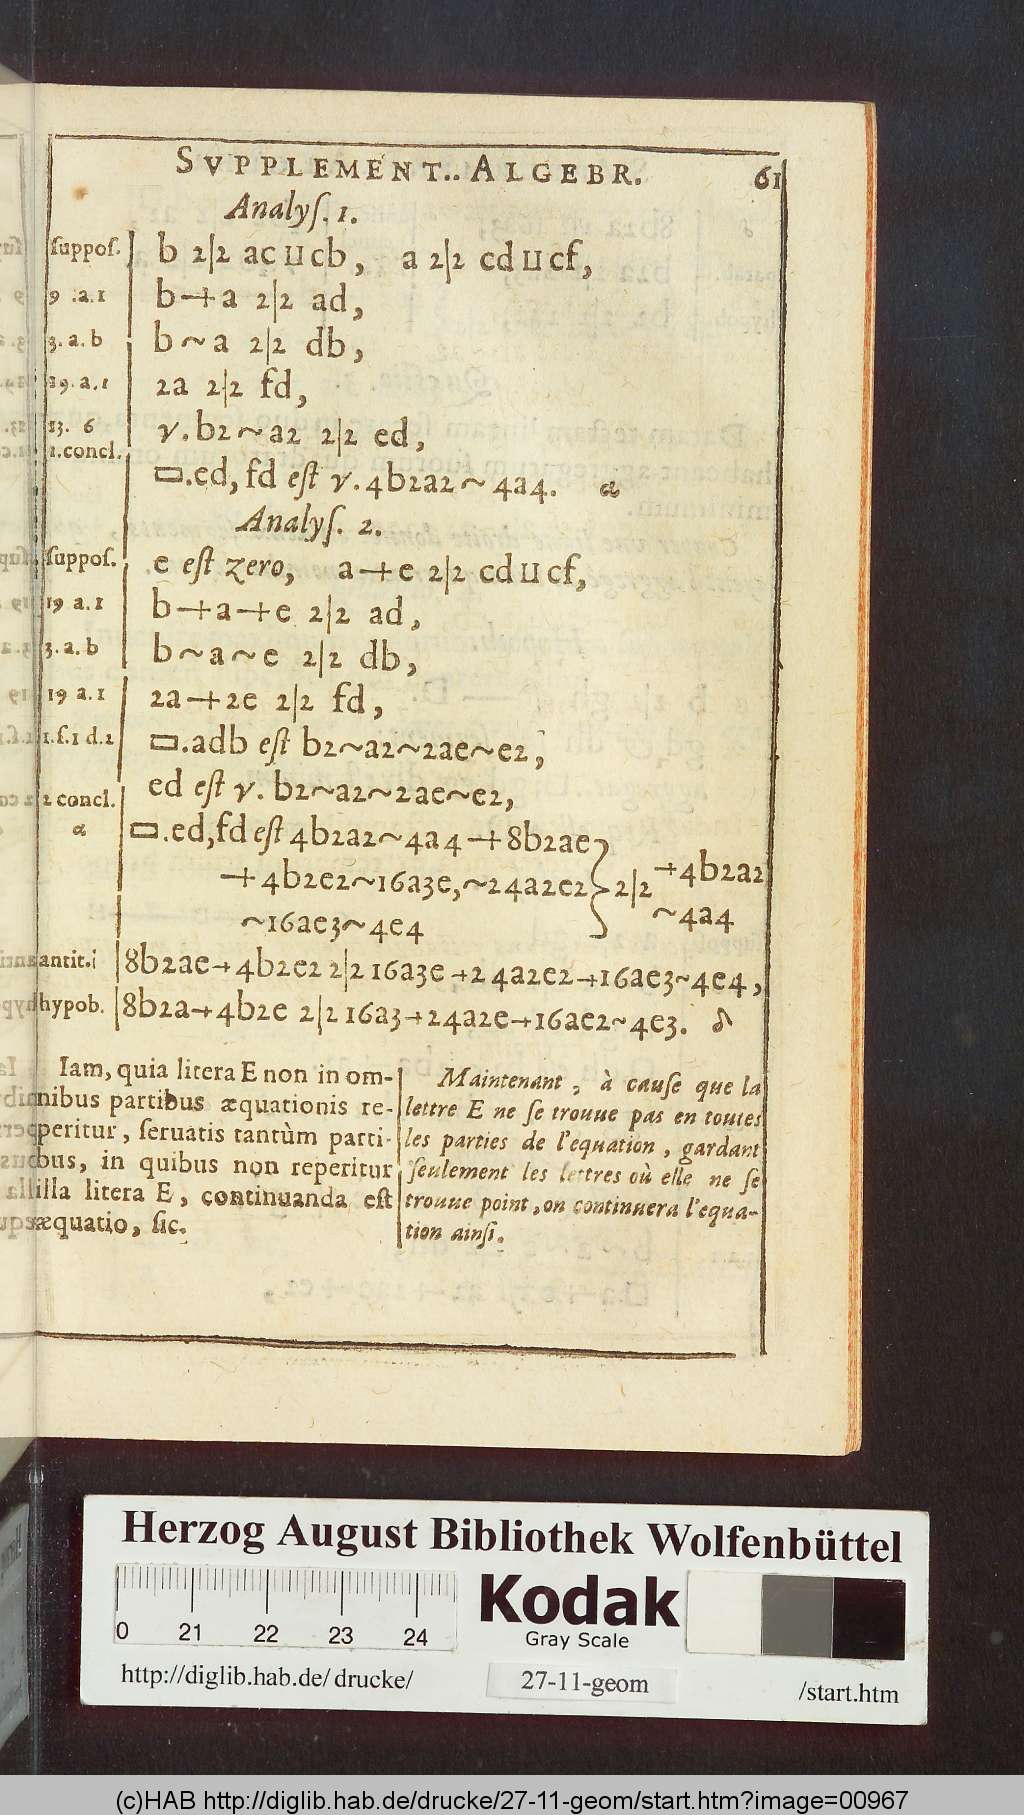 SVPPLEMENT.. ALGEBR. 61
Analyſ. 1.
ſuppoſ. b 2|2 ac ⊔ cb, a 2|2 cd ⊔ cf,
9 .a.1 b+a 2|2 ad,
3. a. b b~a 2|2 db,
19. a. 1 2a 2|2 fd,
13. 6 v.b2~a2 2|2 ed,
1.concl. ▭.ed, fd eſt v.4b2a2~4a4. α
Analyſ. 2.
ſuppoſ. e eſt zero, a+e 2|2 cd ⊔ cf,
19 a.1 b+a+e 2|2 ad,
3. a. b b~a~e 2|2 db,
19 a.1 2a+2e 2|2 fd,
1.ſ.1 d.2 ▭.adb eſt b2~a2~2ae~e2,
ed eſt v. b2~a2~2ae~e2,
2 concl. α ▭.ed,fd eſt 4b2a2~4a4+8b2ae
+4b2e2~16a3e,~24a2e2 } 2|2 +4b2a2
~16ae3~4e4 ~4a4
antit.i 8b2ae+4b2e2 2|2 16a3e+24a2e2+16ae3~4e4,
hypob. 8b2a+4b2e 2|2 16a3+24a2e+16ae2~4e3. δ
Iam, quia litera E non in om-
nibus partibus æquationis re-
peritur, ſeruatis tantùm parti-
bus, in quibus non reperitur
illa litera E, continuanda eſt
æquatio, ſic.
Maintenant, à cauſe que la
lettre E ne ſe trouue pas en toutes
les parties de l'equation, gardant
ſeulement les lettres où elle ne ſe
trouue point, on continuera l'equa-
tion ainſi.
Herzog August Bibliothek Wolfenbüttel
0 21 22 23 24
Kodak
Gray Scale
http://diglib.hab.de/drucke/ 27-11-geom /start.htm
(c)HAB http://diglib.hab.de/drucke/27-11-geom/start.htm?image=00967